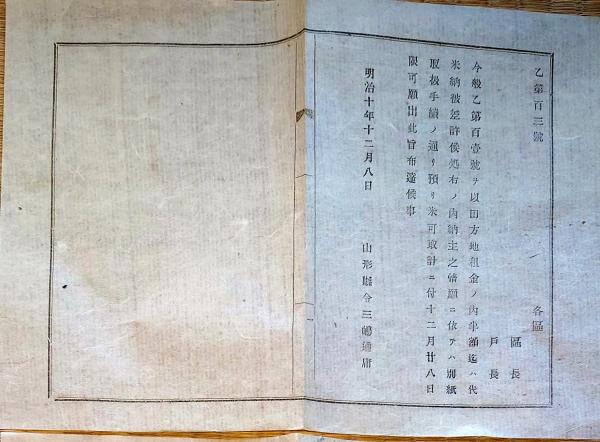 乙第百三號
各區
區長
戶長
今般乙第百壹號ヲ以田方地租金ノ內半額迄ハ代
米納被差許候処右ノ內納主之情願ニ依テハ別紙
取扱手續ノ通リ預リ米可取計ニ付十二月廿八日
限可願出此旨布達候事
明治十年十二月八日
山形縣令三島通庸